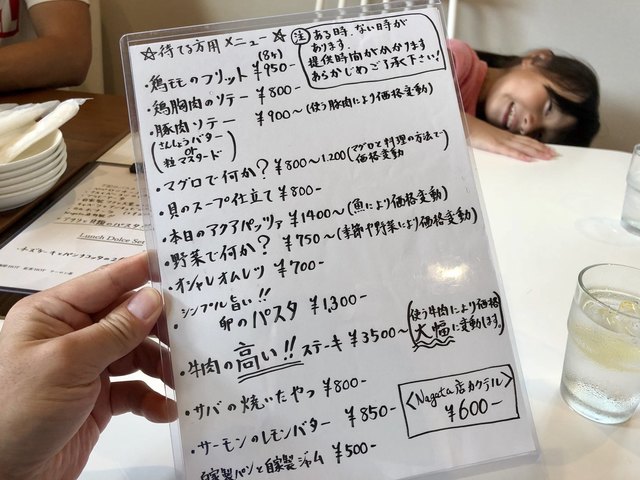 ☆待てる方用メニュー☆
注 ある時、ない時が
あります。
提供時間がかかります
あらかじめご了承下さい!
(8ヶ)
・鶏ももフリット ¥950-
・鶏胸肉のソテー ¥800-
・豚肉ソテー ¥900〜(使う豚肉により価格変動)
(さんしょうバター
or
粒マスタード)
・マグロで何か? ¥800〜1.200(マグロと料理の方法で
価格変動)
・貝のスープ仕立て ¥800-
・本日のアクアパッツァ ¥1400〜(魚により価格変動)
・野菜で何か? ¥750〜(季節や野菜により価格変動)
・オシャレオムレツ ¥700-
・シンプル旨い!!
卵のパスタ ¥1,300-
・牛肉の高い!!ステーキ ¥3500〜
(使う牛肉により価格
大幅に変動します。)
・サバの焼いたやつ ¥800-
・サーモンのレモンバター ¥850-
<Nagata店カクテル>
¥600-
自家製パンと自家製ジャム ¥500-
Lunch Dolce Set